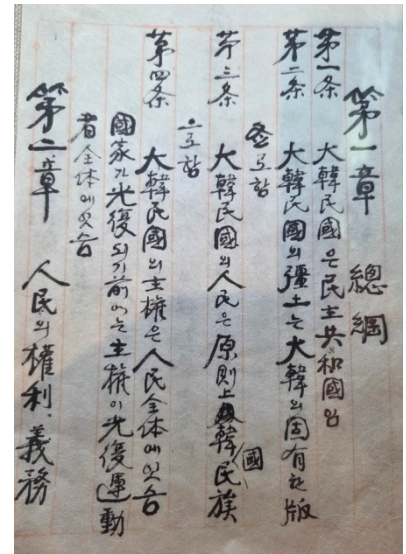 第一章 總綱
第一条 大韓民國은民主共和國임
第二条 大韓民國의彊土는大韓의固有한版
圖로함
第三条 大韓民國의人民은原則上韓國民族
으로함
第四条 大韓民國의主權은人民全体에잇슴
國家가光復되기前에는主權이光復運動
者全体에잇슴
第二章 人民의權利、義務